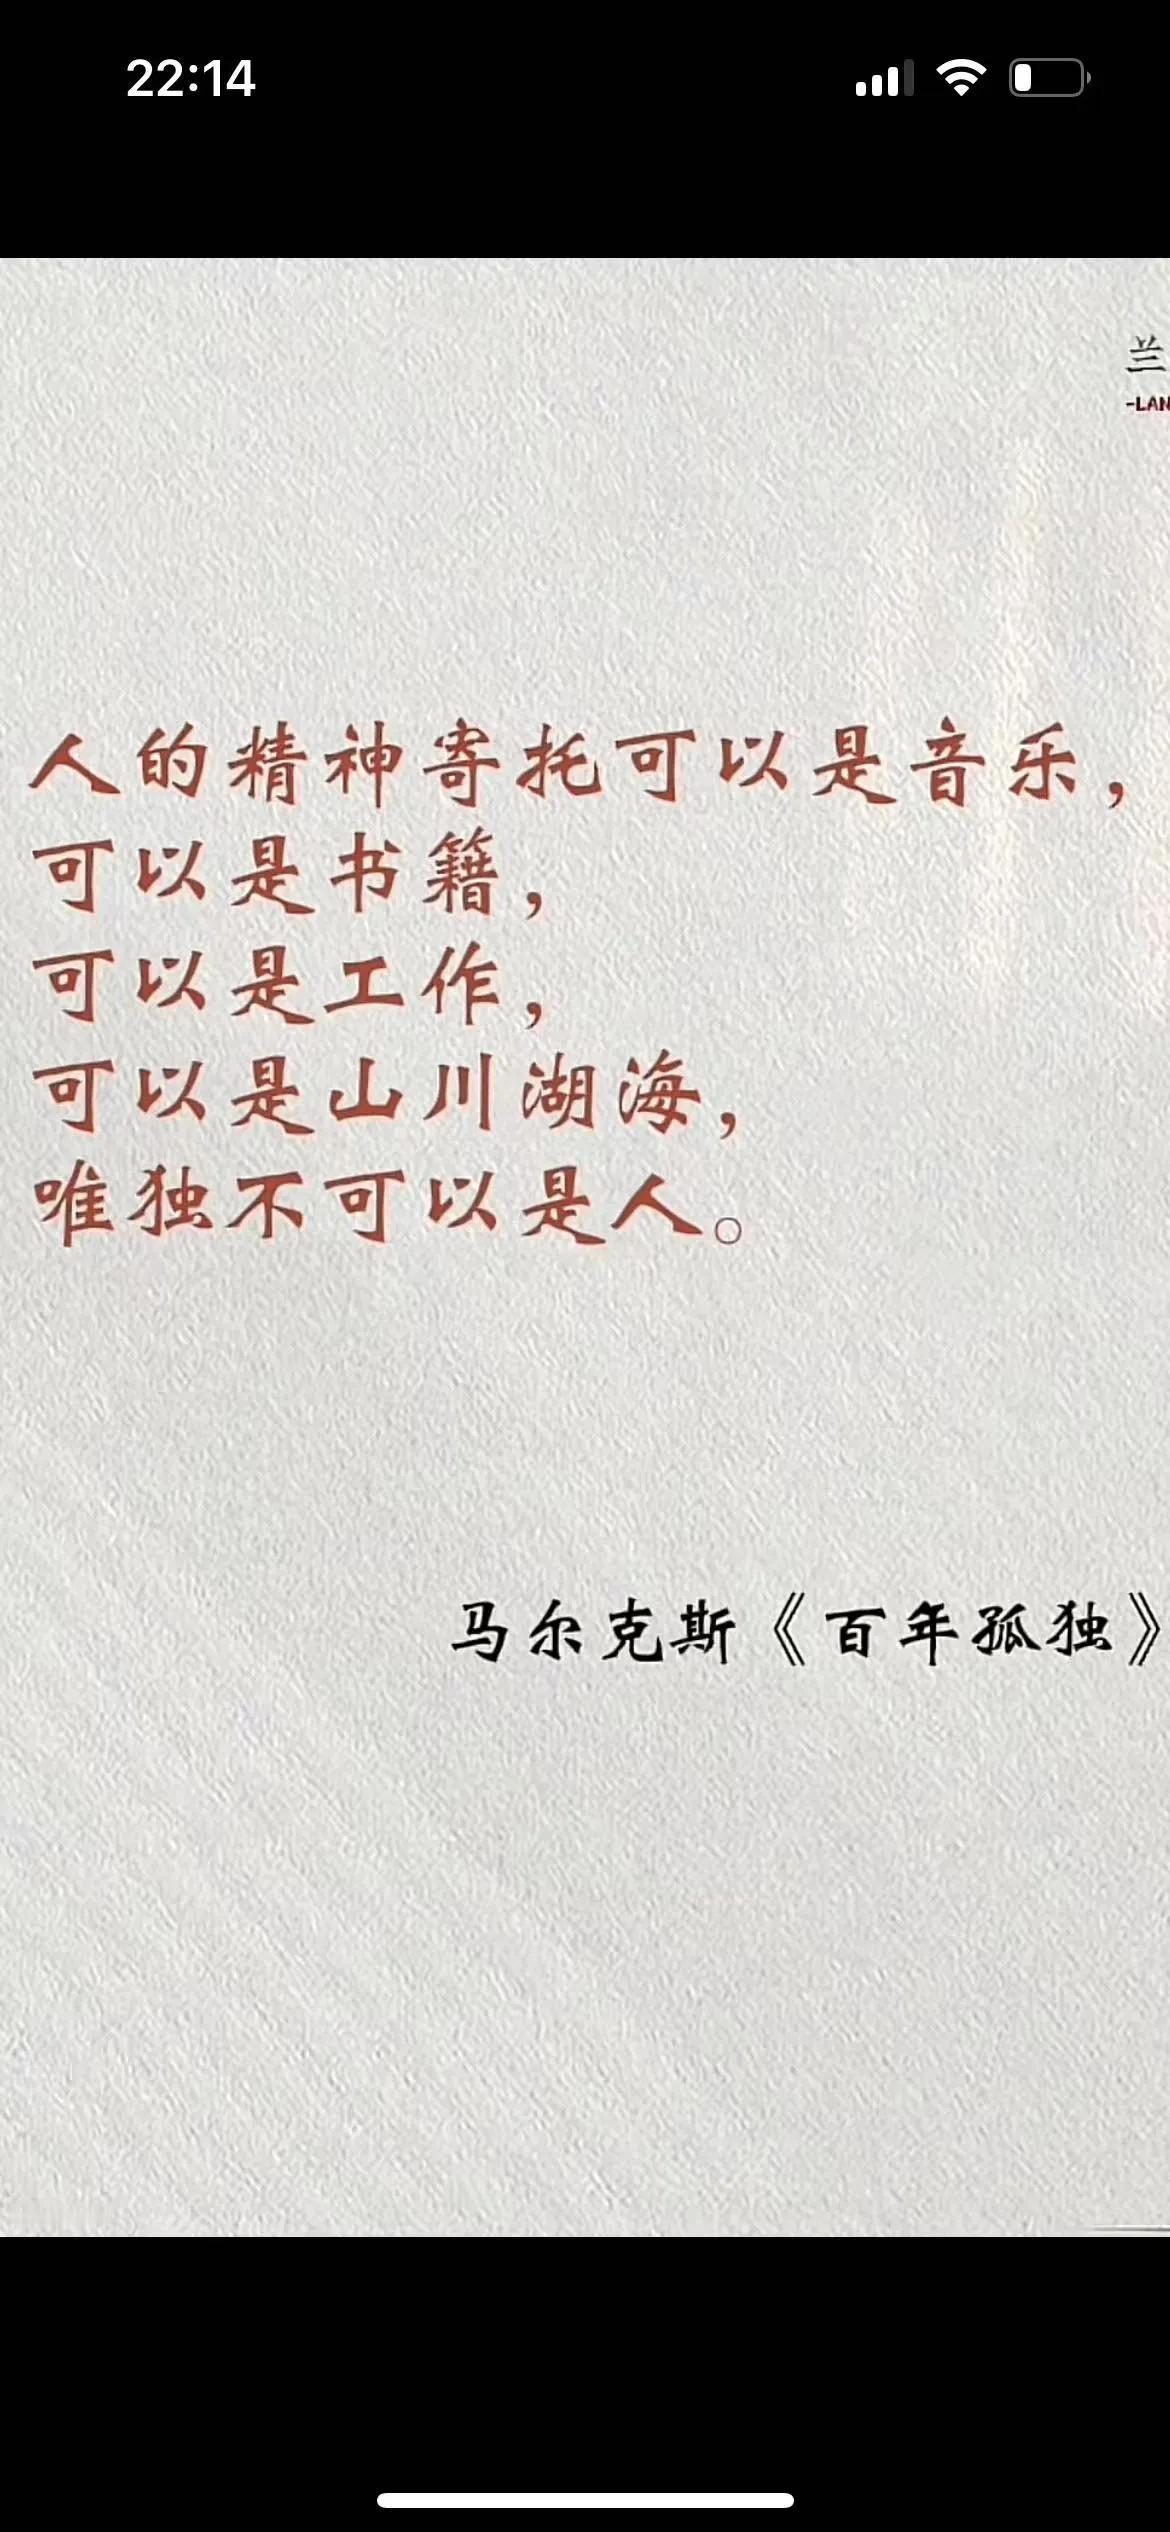 22:14
兰
-LAN
人的精神寄托可以是音乐，
可以是书籍，
可以是工作，
可以是山川湖海，
唯独不可以是人。
马尔克斯《百年孤独》